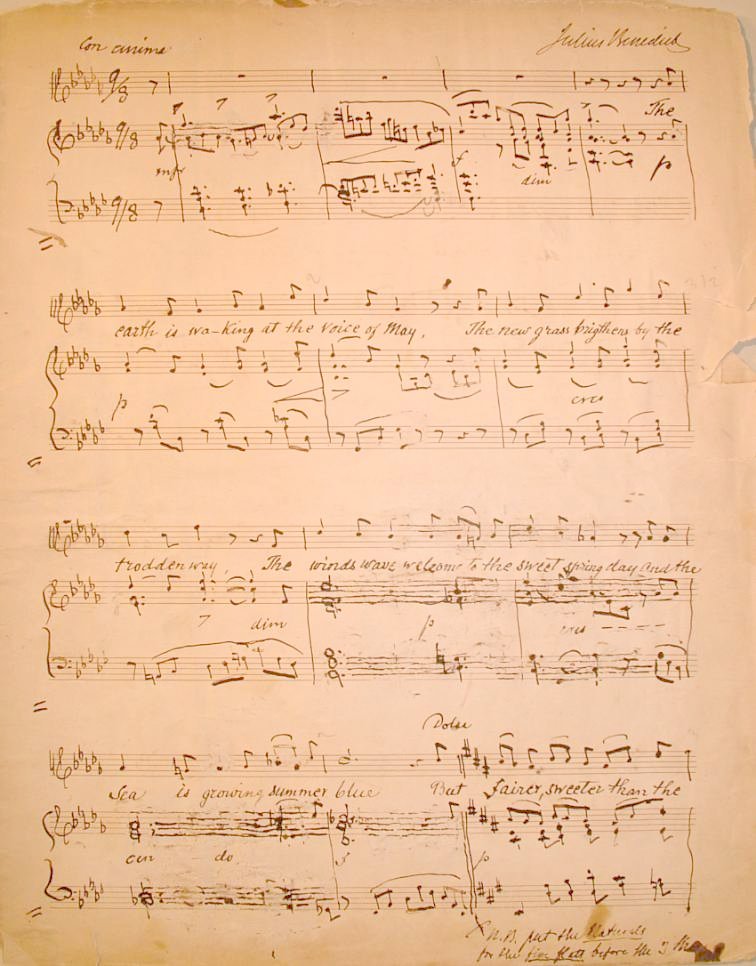 Con anima
Julius Benedict
The
mfz
f
dim
p
earth is wa-king at the voice of May, The new grass brigthens by the
p
cres
trodden way, The winds wave welcome to the sweet spring day and the
dim
p
cres
Dolce
Sea is growing summer blue But fairer, sweeter than the
cen do
p
N.B. put the Naturals
for the five flats before the 3